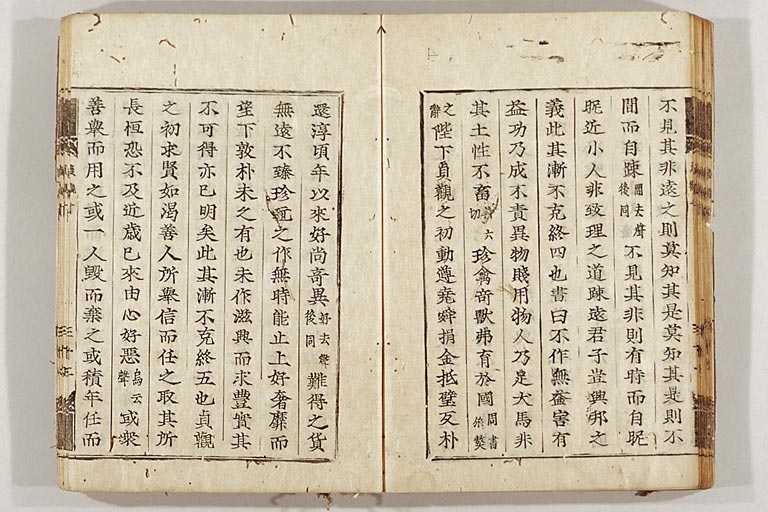 不見其非遠之則莫知其是莫知其是則不
間而自踈間去聲後同不見其非則有時而自昵
昵近小人非致理之道踈遠君子豈興邦之
義此其漸不克終四也書曰不作無益害有
益功乃成不貴異物賤用物人乃足犬馬非
其土性不畜許六切珍禽奇獸弗育於國周書旅獒
之辭陛下貞觀之初動遵堯舜捐金抵璧反朴
還淳頃年以來好尚奇異好去聲後同難得之貨
無遠不臻珍玩之作無時能止上好奢靡而
望下敦朴未之有也末作滋興而求豐實其
不可得亦已明矣此其漸不克終五也貞觀
之初求賢如渴善人所舉信而任之取其所
長恒恐不及近歲已來由心好惡烏去聲或衆
善舉而用之或一人毀而棄之或積年任而